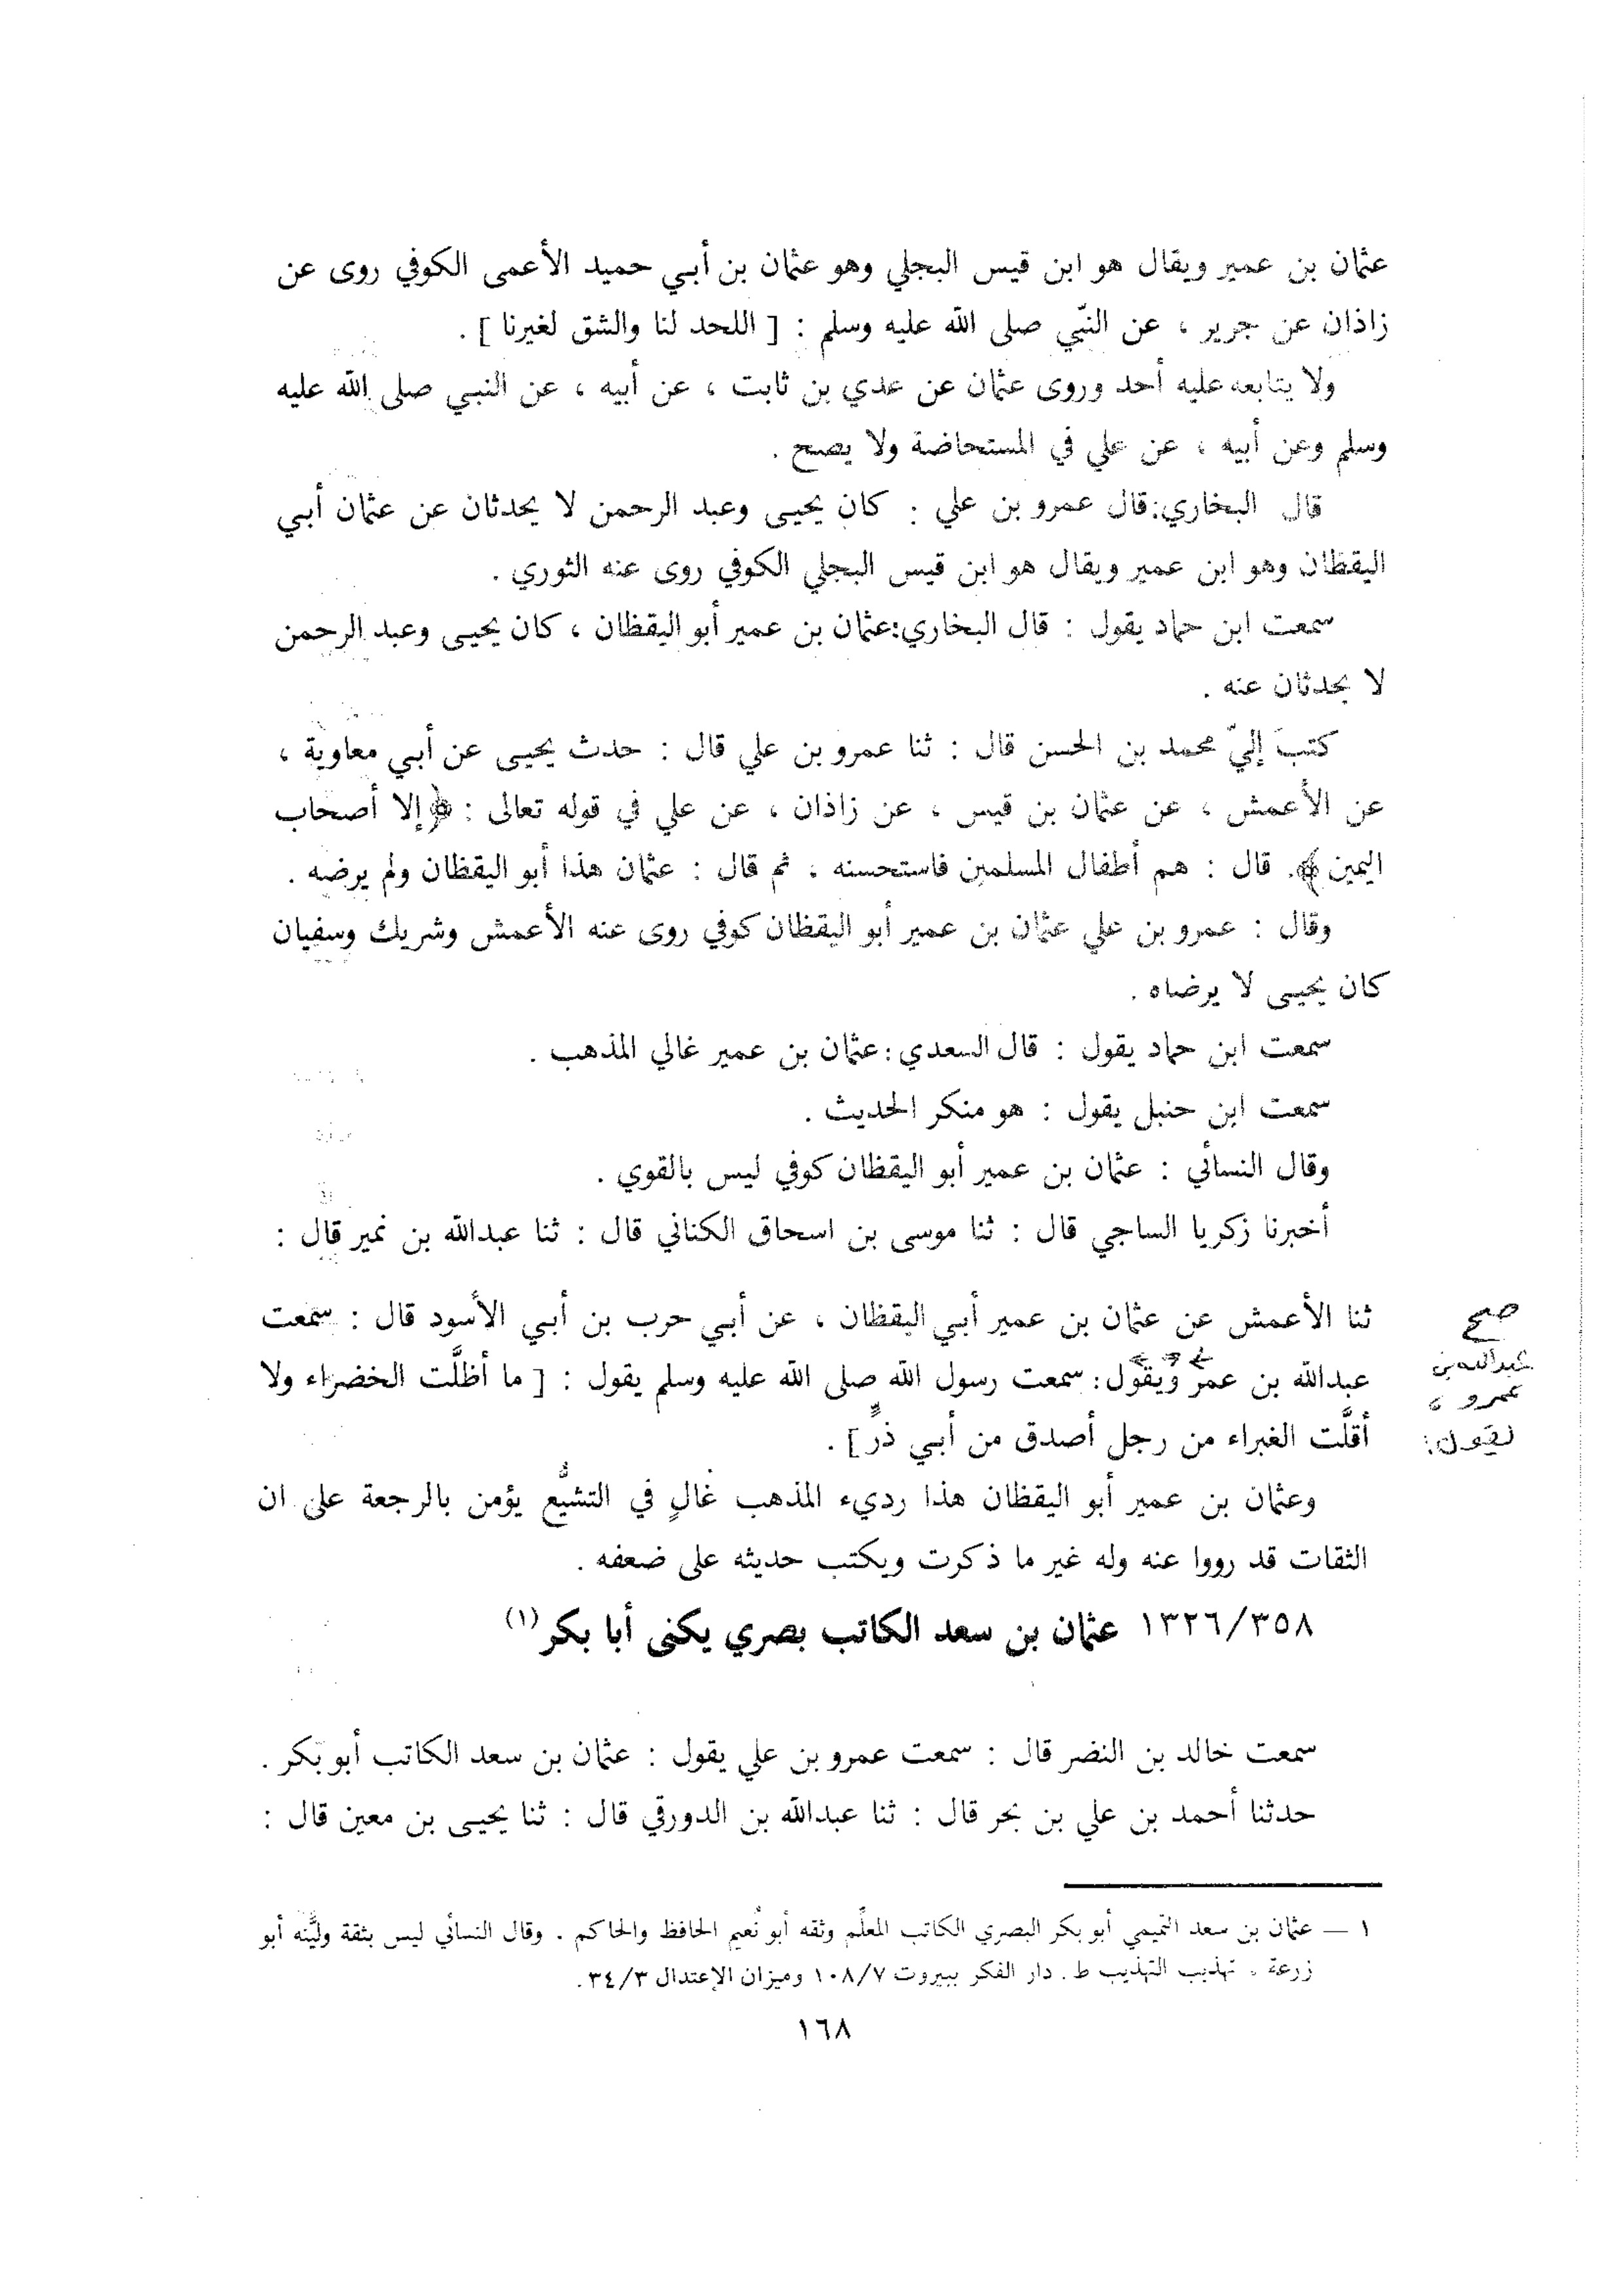 عثمان بن عمير ويقال هو ابن قيس البجلي وهو عثمان بن أبي حميد الأعمى الكوفي روى عن
زاذان عن جرير ، عن النّبي صلى الله عليه وسلم : [ اللحد لنا والشق لغيرنا ] .
ولا يتابعه عليه أحد وروى عثمان عن عدي بن ثابت ، عن أبيه ، عن النبي صلى الله عليه
وسلم وعن أبيه ، عن علي في المستحاضة ولا يصح .
قال البخاري:قال عمرو بن علي : كان يحيى وعبد الرحمن لا يحدثان عن عثمان أبي
اليقظان وهو ابن عمير ويقال هو ابن قيس البجلي الكوفي روى عنه الثوري .
سمعت ابن حماد يقول : قال البخاري:عثمان بن عمير أبو اليقظان ، كان يحيى وعبد الرحمن
لا يحدثان عنه .
كتبَ إليّ محمد بن الحسن قال : ثنا عمرو بن علي قال : حدث يحيى عن أبي معاوية ،
عن الأعمش ، عن عثمان بن قيس ، عن زاذان ، عن علي في قوله تعالى : ﴿إلا أصحاب
اليمين﴾. قال : هم أطفال المسلمين فاستحسنه ، ثم قال : عثمان هذا أبو اليقظان ولم يرضه .
وقال : عمرو بن علي عثمان بن عمير أبو اليقظان كوفي روى عنه الأعمش وشريك وسفيان
كان يحيى لا يرضاه .
سمعت ابن حماد يقول : قال السعدي:عثمان بن عمير غالي المذهب .
سمعت ابن حنبل يقول : هو منكر الحديث .
وقال النسائي : عثمان بن عمير أبو اليقظان كوفي ليس بالقوي .
أخبرنا زكريا الساجي قال : ثنا موسى بن اسحاق الكناني قال : ثنا عبدالله بن نمير قال :
ثنا الأعمش عن عثمان بن عمير أبي اليقظان ، عن أبي حرب بن أبي الأسود قال : سمعت
عبدالله بن عمر ويقول: سمعت رسول الله صلى الله عليه وسلم يقول : [ ما أظلَّت الخضراء ولا
أقلَّت الغبراء من رجل أصدق من أبي ذرٍّ ] .
صح
عبدالله بن
عمرو
يقول:
وعثمان بن عمير أبو اليقظان هذا رديء المذهب غالٍ في التشيُّع يؤمن بالرجعة على ان
الثقات قد رووا عنه وله غير ما ذكرت ويكتب حديثه على ضعفه .
١٣٢٦/٣٥٨ عثمان بن سعد الكاتب بصري يكنى أبا بكر (١)
سمعت خالد بن النضر قال : سمعت عمرو بن علي يقول : عثمان بن سعد الكاتب أبو بكر .
حدثنا أحمد بن علي بن بحر قال : ثنا عبدالله بن الدورقي قال : ثنا يحيى بن معين قال :
١ — عثمان بن سعد التميمي أبو بكر البصري الكاتب المعلَّم وثقه أبو نُعيم الحافظ والحاكم . وقال النسائي ليس بثقة وليَّنه أبو
زرعة . تهذيب التهذيب ط . دار الفكر ببيروت ١٠٨/٧ وميزان الإعتدال ٣٤/٣ .
١٦٨